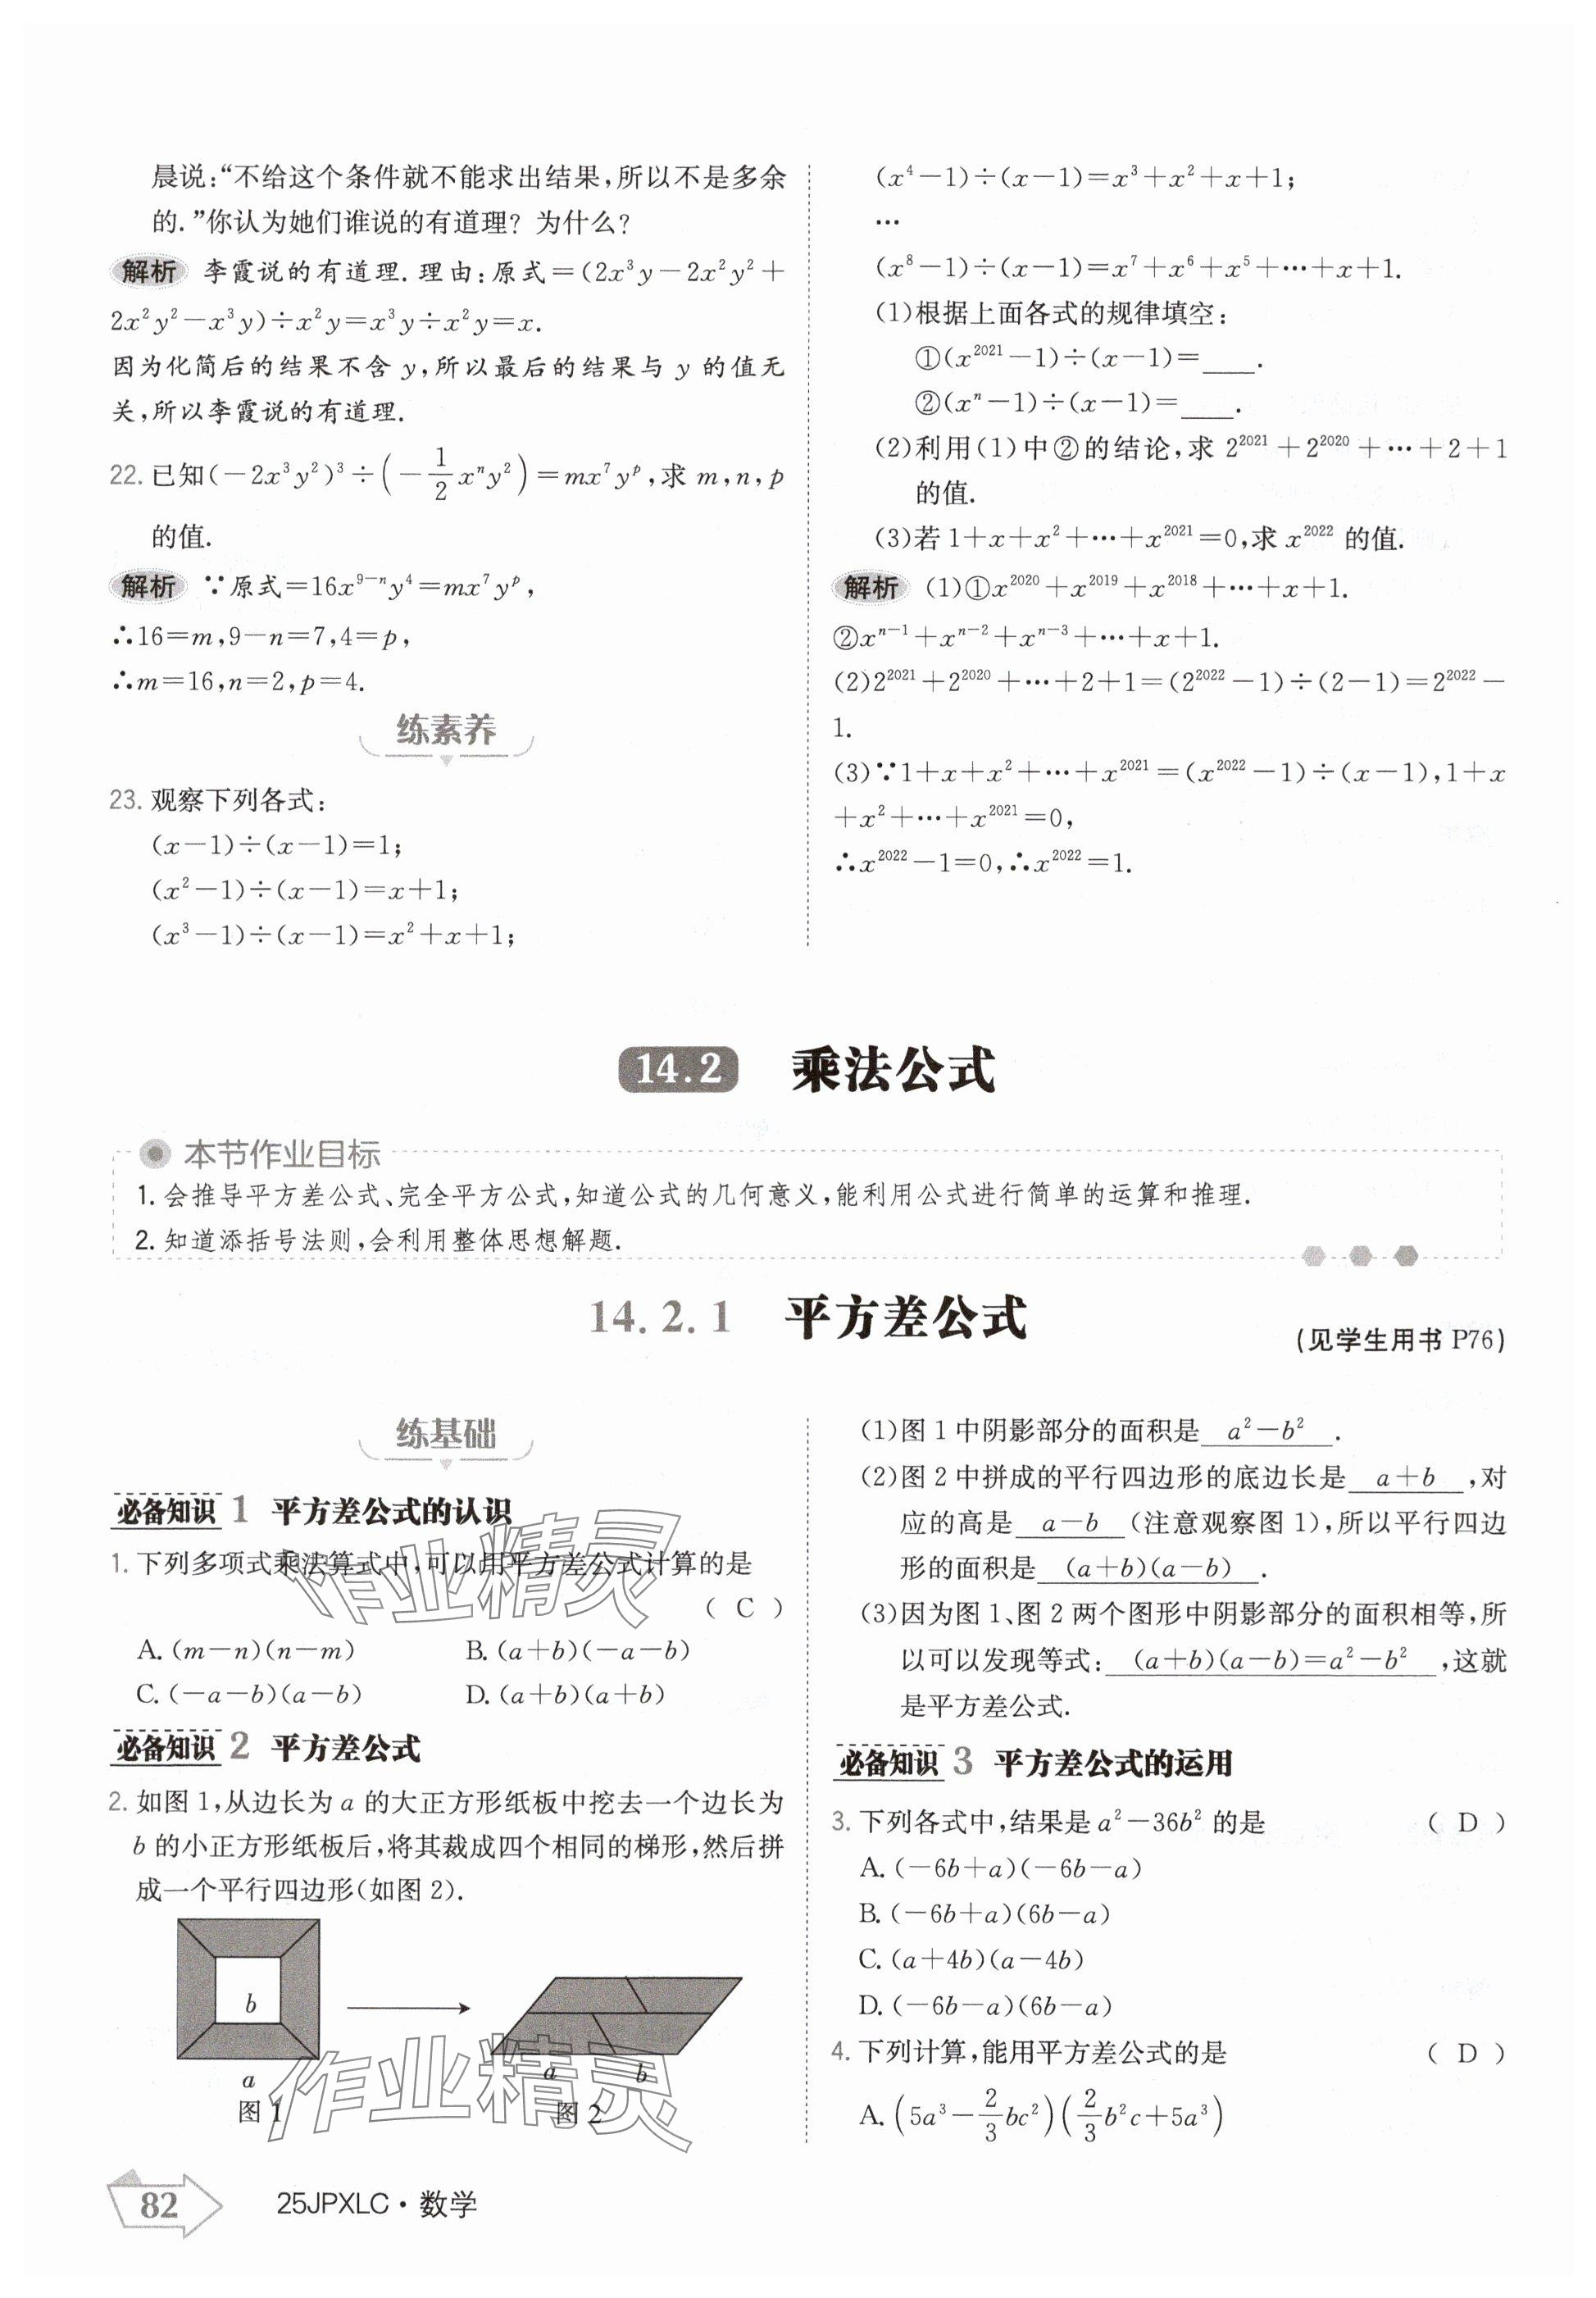 晨说:“不给这个条件就不能求出结果,所以不是多余
的.”你认为她们谁说的有道理? 为什么?
解析 李霞说的有道理. 理由:原式=(2x³y-2x²y²+
2x²y²-x³y)÷x²y=x³y÷x²y=x.
因为化简后的结果不含 y,所以最后的结果与 y 的值无
关,所以李霞说的有道理.
22. 已知(-2x³y²)³÷(-1/2 xⁿy²)=mx⁷y^p,求 m,n,p
的值.
解析 ∵原式=16x^(9-n)y⁴=mx⁷y^p,
∴16=m,9-n=7,4=p,
∴m=16,n=2,p=4.
练素养
23. 观察下列各式:
(x-1)÷(x-1)=1;
(x²-1)÷(x-1)=x+1;
(x³-1)÷(x-1)=x²+x+1;
(x⁴-1)÷(x-1)=x³+x²+x+1;
…
(x⁸-1)÷(x-1)=x⁷+x⁶+x⁵+…+x+1.
(1)根据上面各式的规律填空:
①(x²⁰²¹-1)÷(x-1)=____.
②(xⁿ-1)÷(x-1)=____.
(2)利用(1)中②的结论,求 2²⁰²¹+2²⁰²⁰+…+2+1
的值.
(3)若 1+x+x²+…+x²⁰²¹=0,求 x²⁰²² 的值.
解析 (1)①x²⁰²⁰+x²⁰¹⁹+x²⁰¹⁸+…+x+1.
②xⁿ⁻¹+xⁿ⁻²+xⁿ⁻³+…+x+1.
(2)2²⁰²¹+2²⁰²⁰+…+2+1=(2²⁰²²-1)÷(2-1)=2²⁰²²-
1.
(3)∵1+x+x²+…+x²⁰²¹=(x²⁰²²-1)÷(x-1),1+x
+x²+…+x²⁰²¹=0,
∴x²⁰²²-1=0,∴x²⁰²²=1.
14.2 乘法公式
本节作业目标
1. 会推导平方差公式、完全平方公式,知道公式的几何意义,能利用公式进行简单的运算和推理.
2. 知道添括号法则,会利用整体思想解题.
14.2.1 平方差公式
(见学生用书 P76)
练基础
必备知识 1 平方差公式的认识
1. 下列多项式乘法算式中,可以用平方差公式计算的是
( C )
A. (m-n)(n-m) B. (a+b)(-a-b)
C. (-a-b)(a-b) D. (a+b)(a+b)
必备知识 2 平方差公式
2. 如图 1,从边长为 a 的大正方形纸板中挖去一个边长为
b 的小正方形纸板后,将其裁成四个相同的梯形,然后拼
成一个平行四边形(如图 2).
b
a
图 1
a b
图 2
(1)图 1 中阴影部分的面积是 a²-b² .
(2)图 2 中拼成的平行四边形的底边长是 a+b ,对
应的高是 a-b (注意观察图 1),所以平行四边
形的面积是 (a+b)(a-b) .
(3)因为图 1、图 2 两个图形中阴影部分的面积相等,所
以可以发现等式: (a+b)(a-b)=a²-b² ,这就
是平方差公式.
必备知识 3 平方差公式的运用
3. 下列各式中,结果是 a²-36b² 的是 ( D )
A. (-6b+a)(-6b-a)
B. (-6b+a)(6b-a)
C. (a+4b)(a-4b)
D. (-6b-a)(6b-a)
4. 下列计算,能用平方差公式的是 ( D )
A. (5a³-2/3 bc²)(2/3 b²c+5a³)
82 25JPXLC·数学
作业精灵
作业精灵